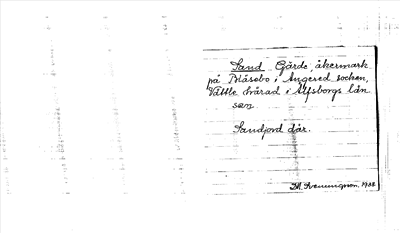 Sand Gärde, åkermark
på Blåsebo i Angered socken,
Vättle härad i Älfsborgs län
sen.
Sandjord där.
M. Svenungsson. 1928